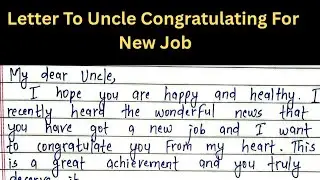 Letter To Uncle Congratulating For
New Job
My dear Uncle,
I hope you are happy and healthy. I
recently heard the wonderful news that
you have got a new job and I want
to congratulate you from my heart. This
is a great achievement and you truly
deserve it